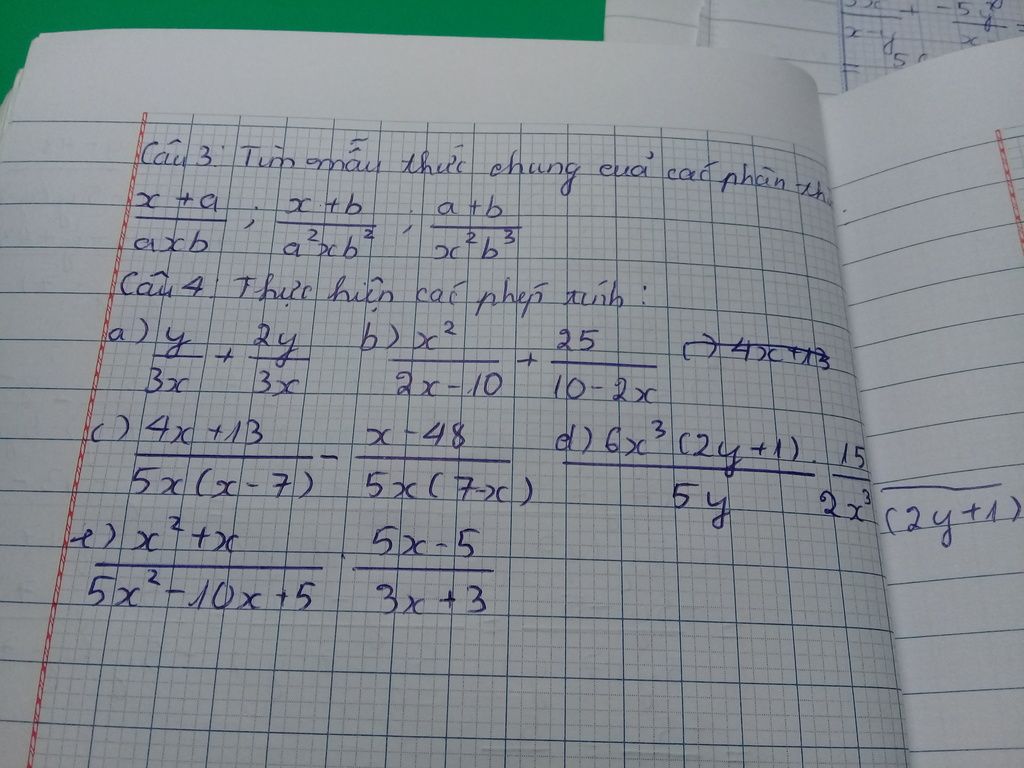 5x/x-y + -5y/x
= 5(
Câu 3: Tìm mẫu thức chung cuả các phân thứ
x+a/axb ; x+b/a²xb² ; a+b/x²b³
Câu 4: Thực hiện các phép tính:
a) y/3x + 2y/3x b) x²/2x-10 + 25/10-2x c) 4x+13
c) 4x+13/5x(x-7) - x-48/5x(7-x) d) 6x³(2y+1)/5y . 15/2x³(2y+1)
e) x²+x/5x²-10x+5 . 5x-5/3x+3